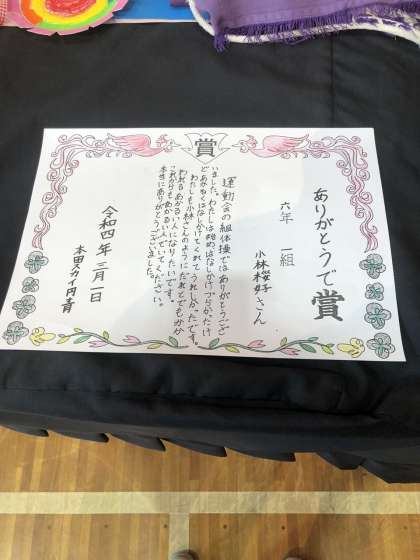 賞
ありがとうで賞
六年 一組
小林桜好さん
運動会の組体操ではありがとうござ
いました。わたしは始めはなしかけづらかったけ
どあかるくはなしかけてくれてうれしかったです。
わたしも小林さんのように
あかるい人になりたいです。
これからもあかるい人でいてください。
本当にありがとうございました。
令和四年三月一日
本田スカイ円青